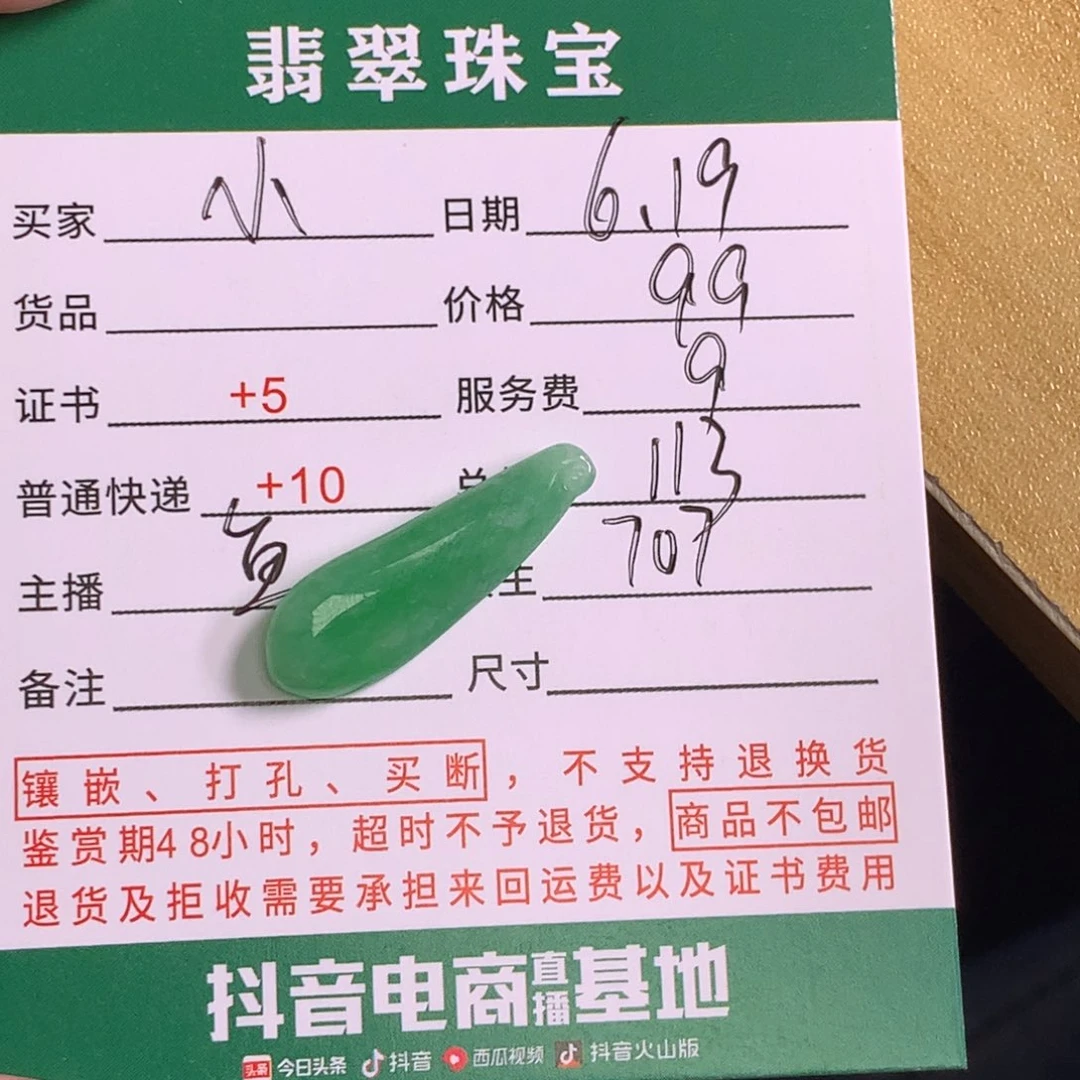 翡翠珠宝
买家 小 日期 6.19
货品 价格 99
证书 +5 服务费 9
普通快递 +10 113
主播 707
备注 尺寸
镶嵌、打孔、买断，不支持退换货
鉴赏期48小时，超时不予退货，商品不包邮
退货及拒收需要承担来回运费以及证书费用
抖音电商直播基地
头条 今日头条 抖音 西瓜视频 抖音火山版